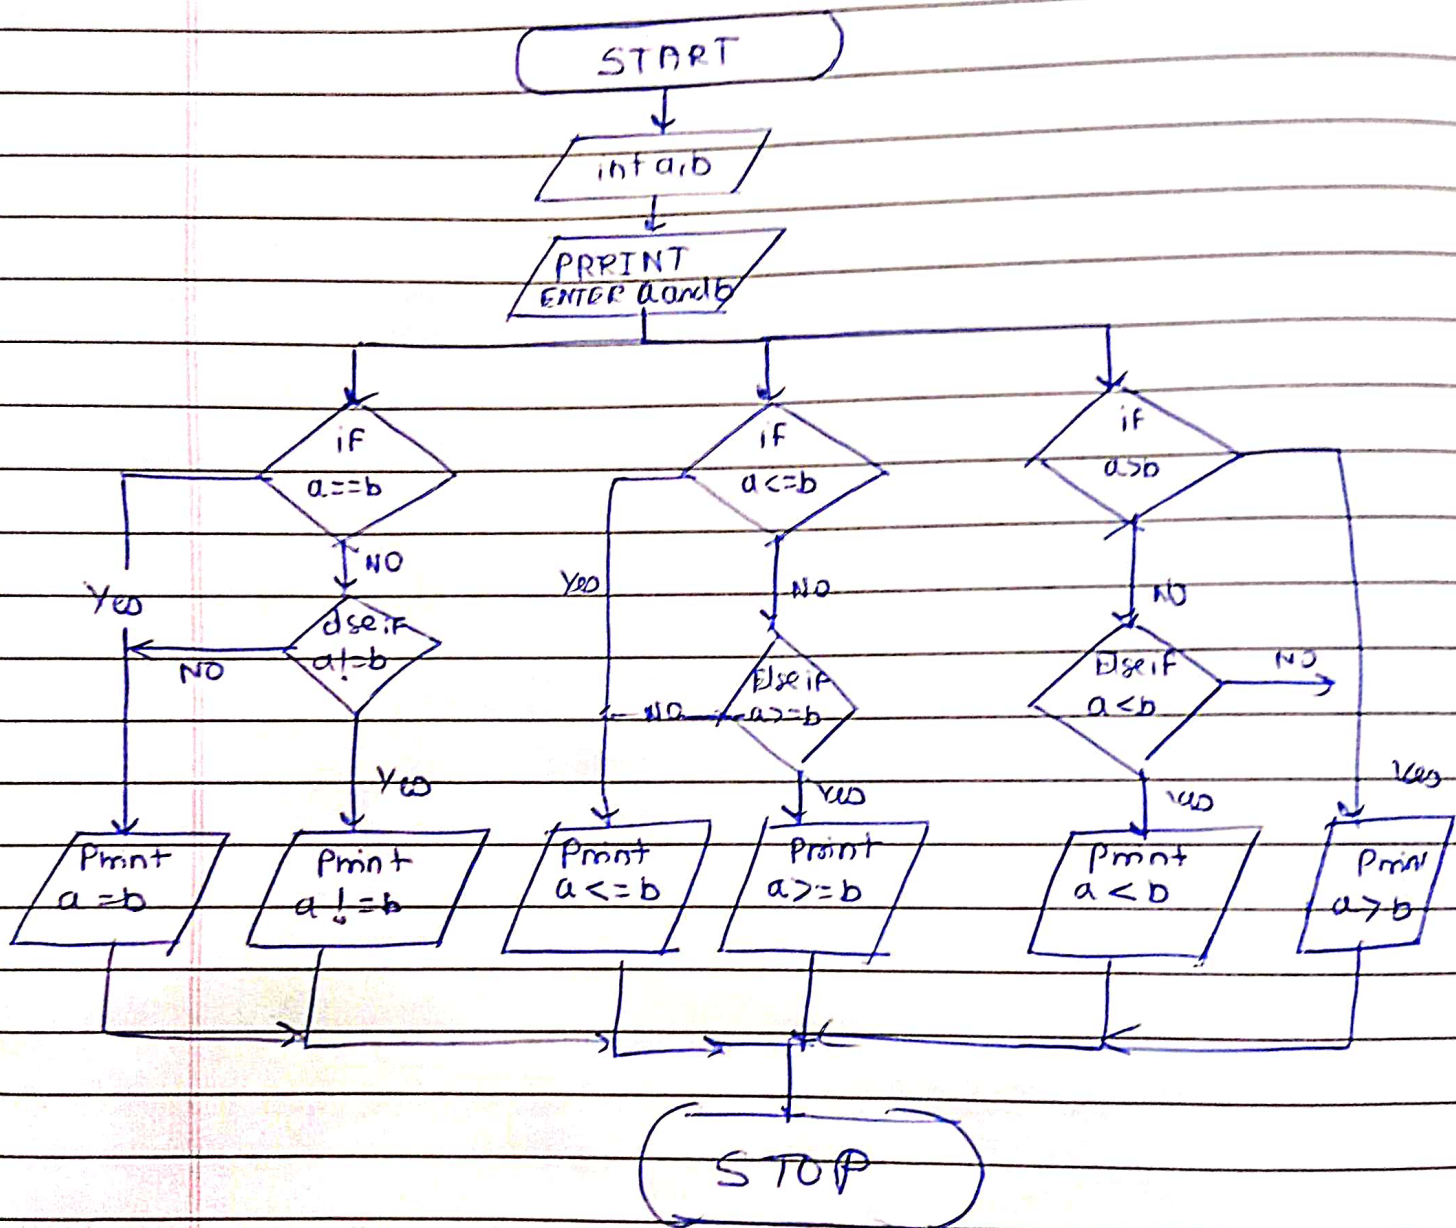 START
int a,b
PRRINT
ENTER a and b
if
a==b
if
a<=b
if
a>b
NO
Yes
Yes
NO
NO
else if
a!=b
NO
Else if
a>=b
NO
Else if
a<b
NO
Yes
Yes
Yes
Yes
Print
a=b
Print
a!=b
Print
a<=b
Print
a>=b
Print
a<b
Print
a>b
STOP